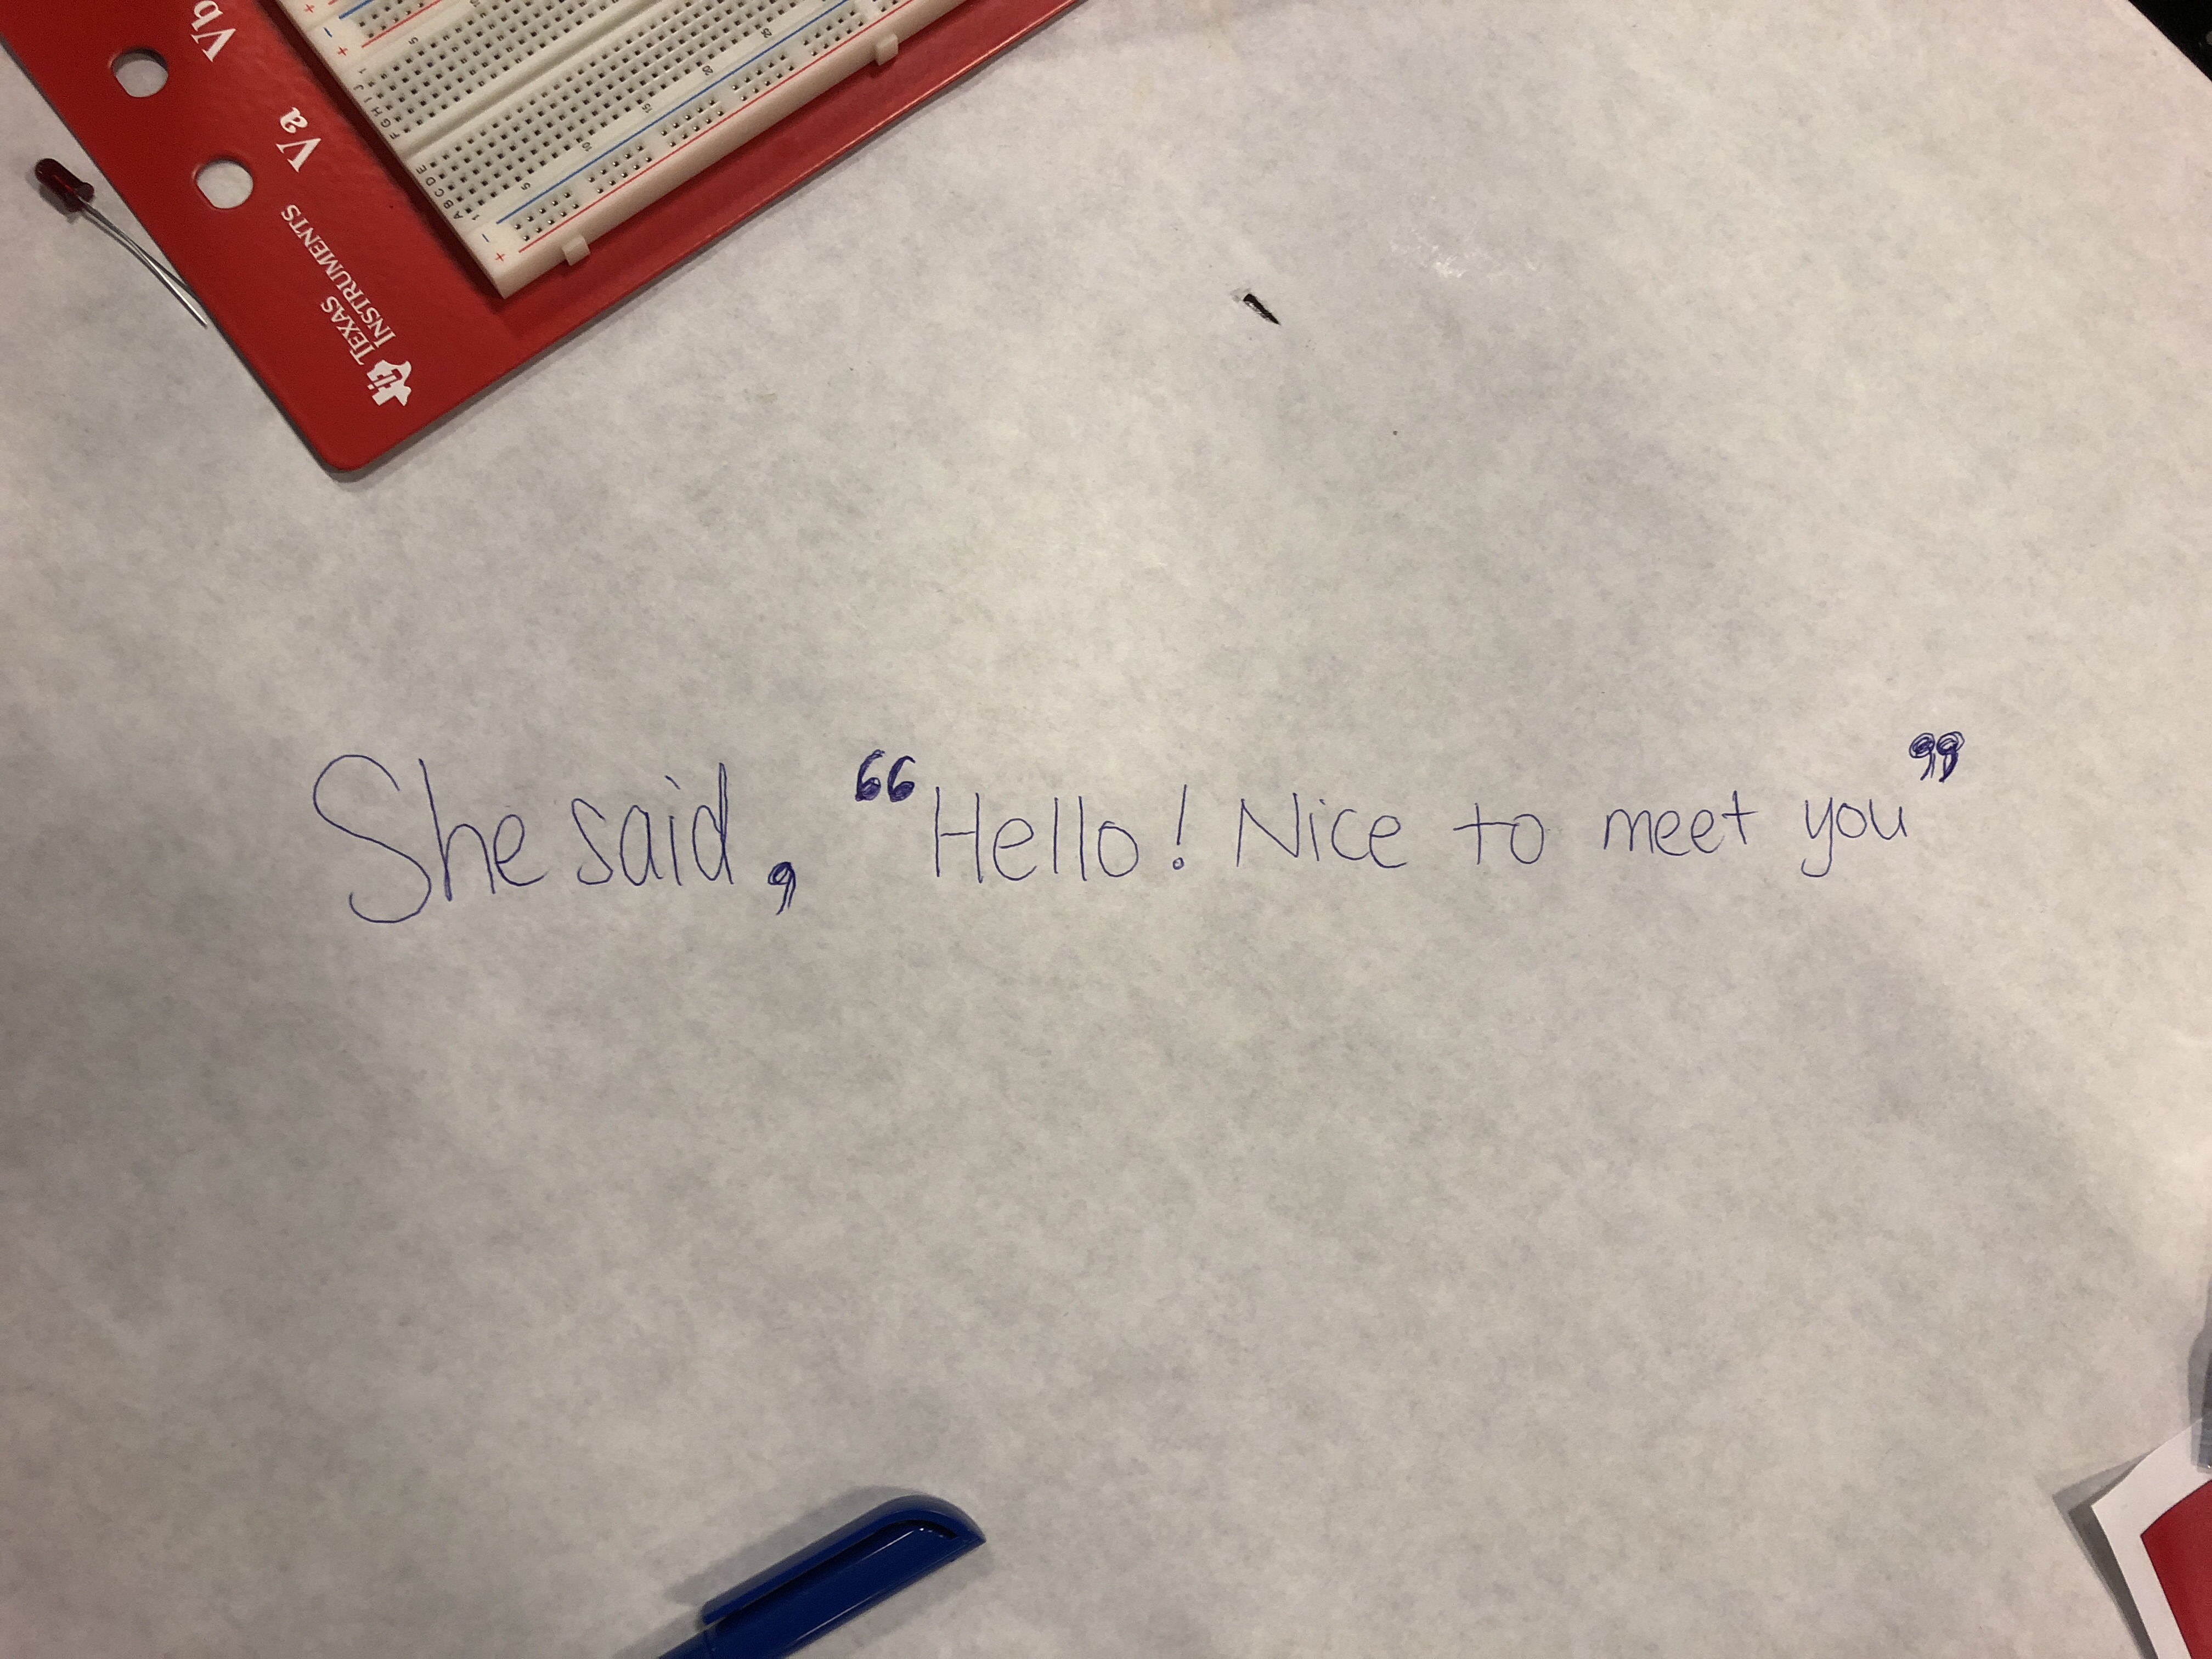 She said, “Hello! Nice to meet you”
TEXAS
INSTRUMENTS
Va
Vb
A B C D E
F G H I J
1
5
10
15
20
25
1
5
+
−
+
−
+